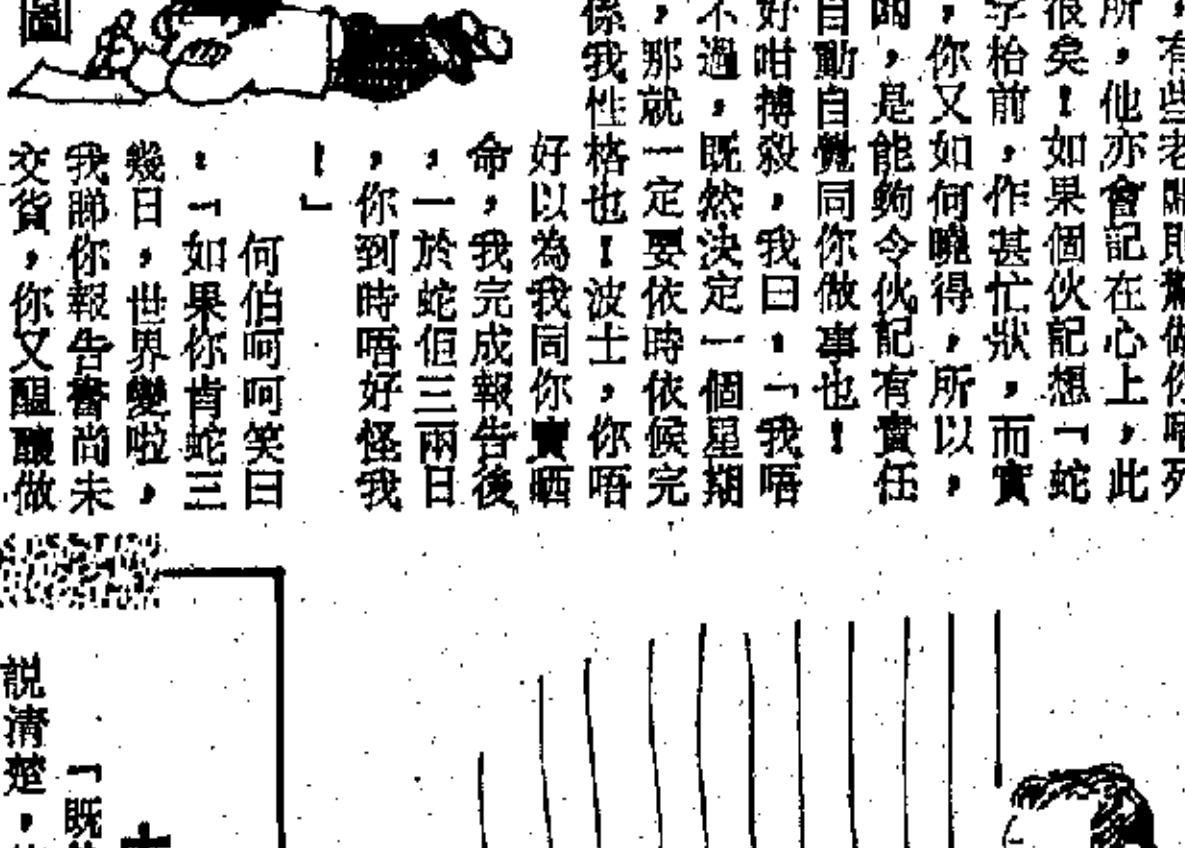 ，有些老闆則驚做你唔
所，他亦會記在心上，此
很矣！如果個伙記想「蛇
字枱前，作甚忙狀，而實
，你又如何曉得，所以，
闆，是能夠令伙記有責任
自動自覺同你做事也！
好咁搏殺，我曰：「我唔
不過，既然決定一個星期
，那就一定要依時依候完
係我性格也！波士，你唔
好以為我同你賣晒
命，我完成報告後
，一於蛇佢三兩日
，你到時唔好怪我
！」
何伯呵呵笑曰
：「如果你肯蛇三
幾日，世界變啦，
我睇你報告書尚未
交貨，你又醞釀做
圖
「既
說清楚，